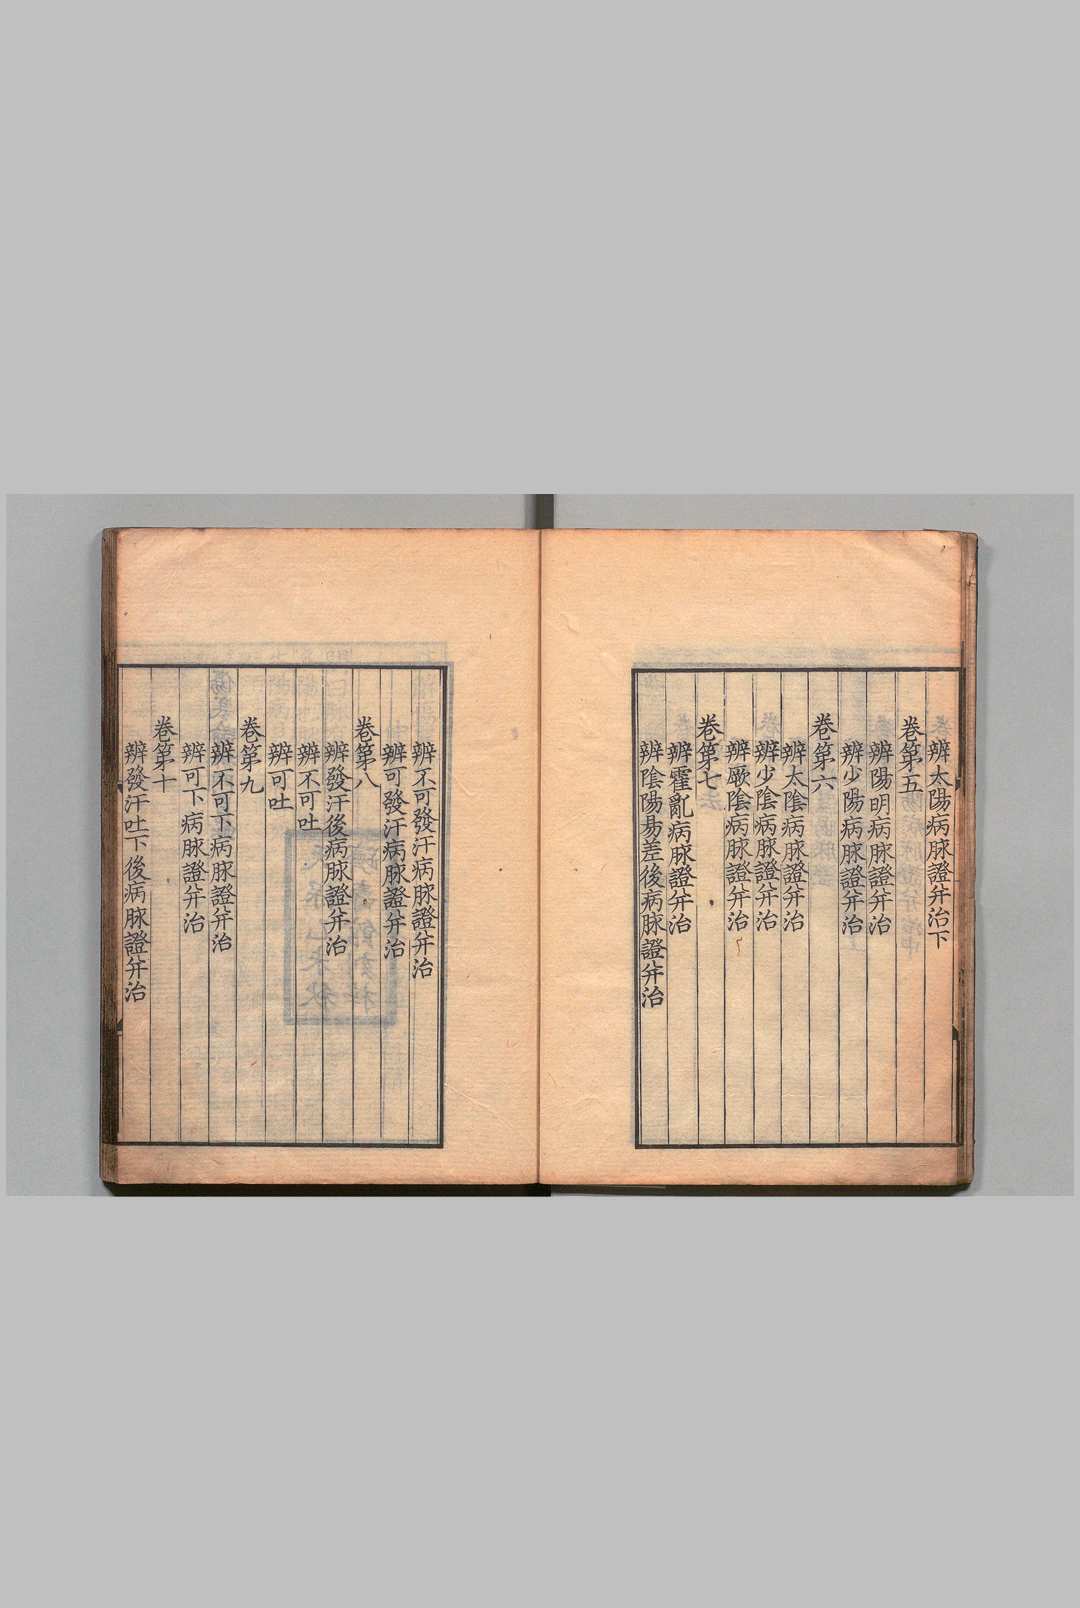 辨太陽病脉證并治下
卷第五
辨陽明病脉證并治
辨少陽病脉證并治
卷第六
辨太陰病脉證并治
辨少陰病脉證并治
辨厥陰病脉證并治
卷第七
辨霍亂病脉證并治
辨陰陽易差後病脉證并治
辨不可發汗病脉證并治
辨可發汗病脉證并治
卷第八
辨發汗後病脉證并治
辨不可吐
辨可吐
卷第九
辨不可下病脉證并治
辨可下病脉證并治
卷第十
辨發汗吐下後病脉證并治